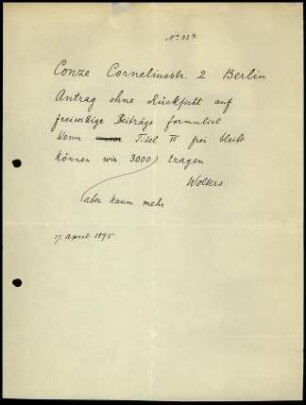 No 223
Conze Corneliusstr. 2 Berlin
Antrag ohne Rücksicht auf
freiwillige Beiträge formulirt
Wenn Titel IV frei bleibt
können wir 3000) tragen
Wolters
(aber kaum mehr
17 April 1895